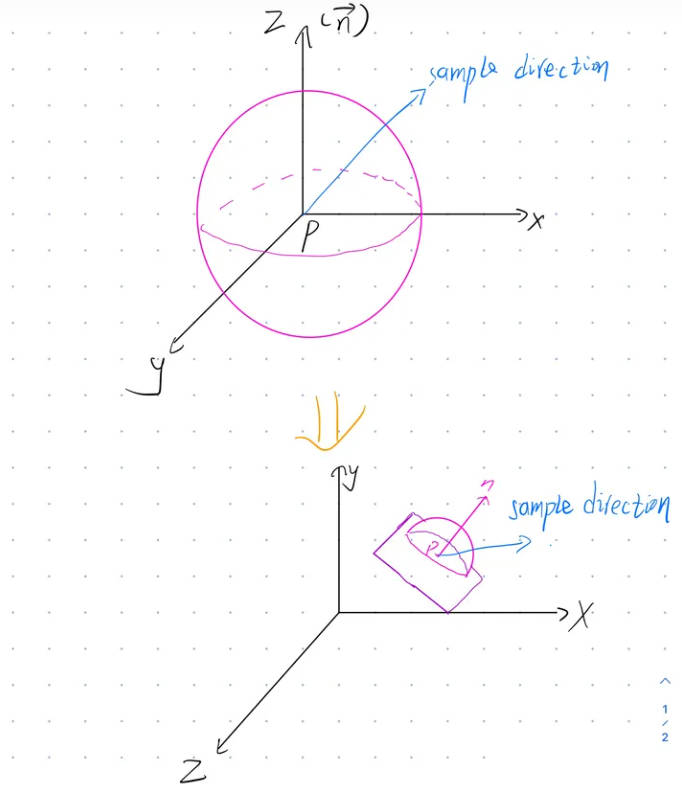 Z (n⃗)
sample direction
P
x
y
y
n
sample direction
P
X
Z
^
1
/
2